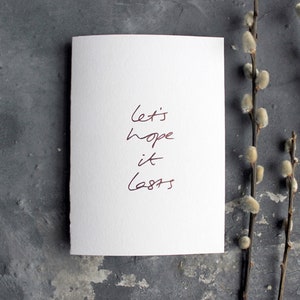 let's
hope
it
lasts